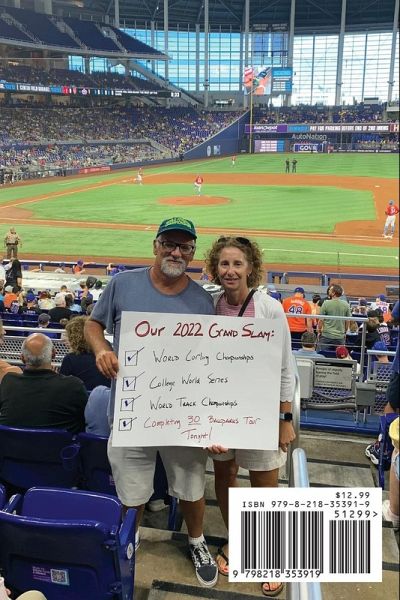 AutoNation
GOYA
48
Our 2022 Grand Slam:
World Curling Championships
College World Series
World Track Championships
Completing 30 Ballparks Tour
Tonight!
$12.99
ISBN 979-8-218-35391-9
51299>
9 798218 353919